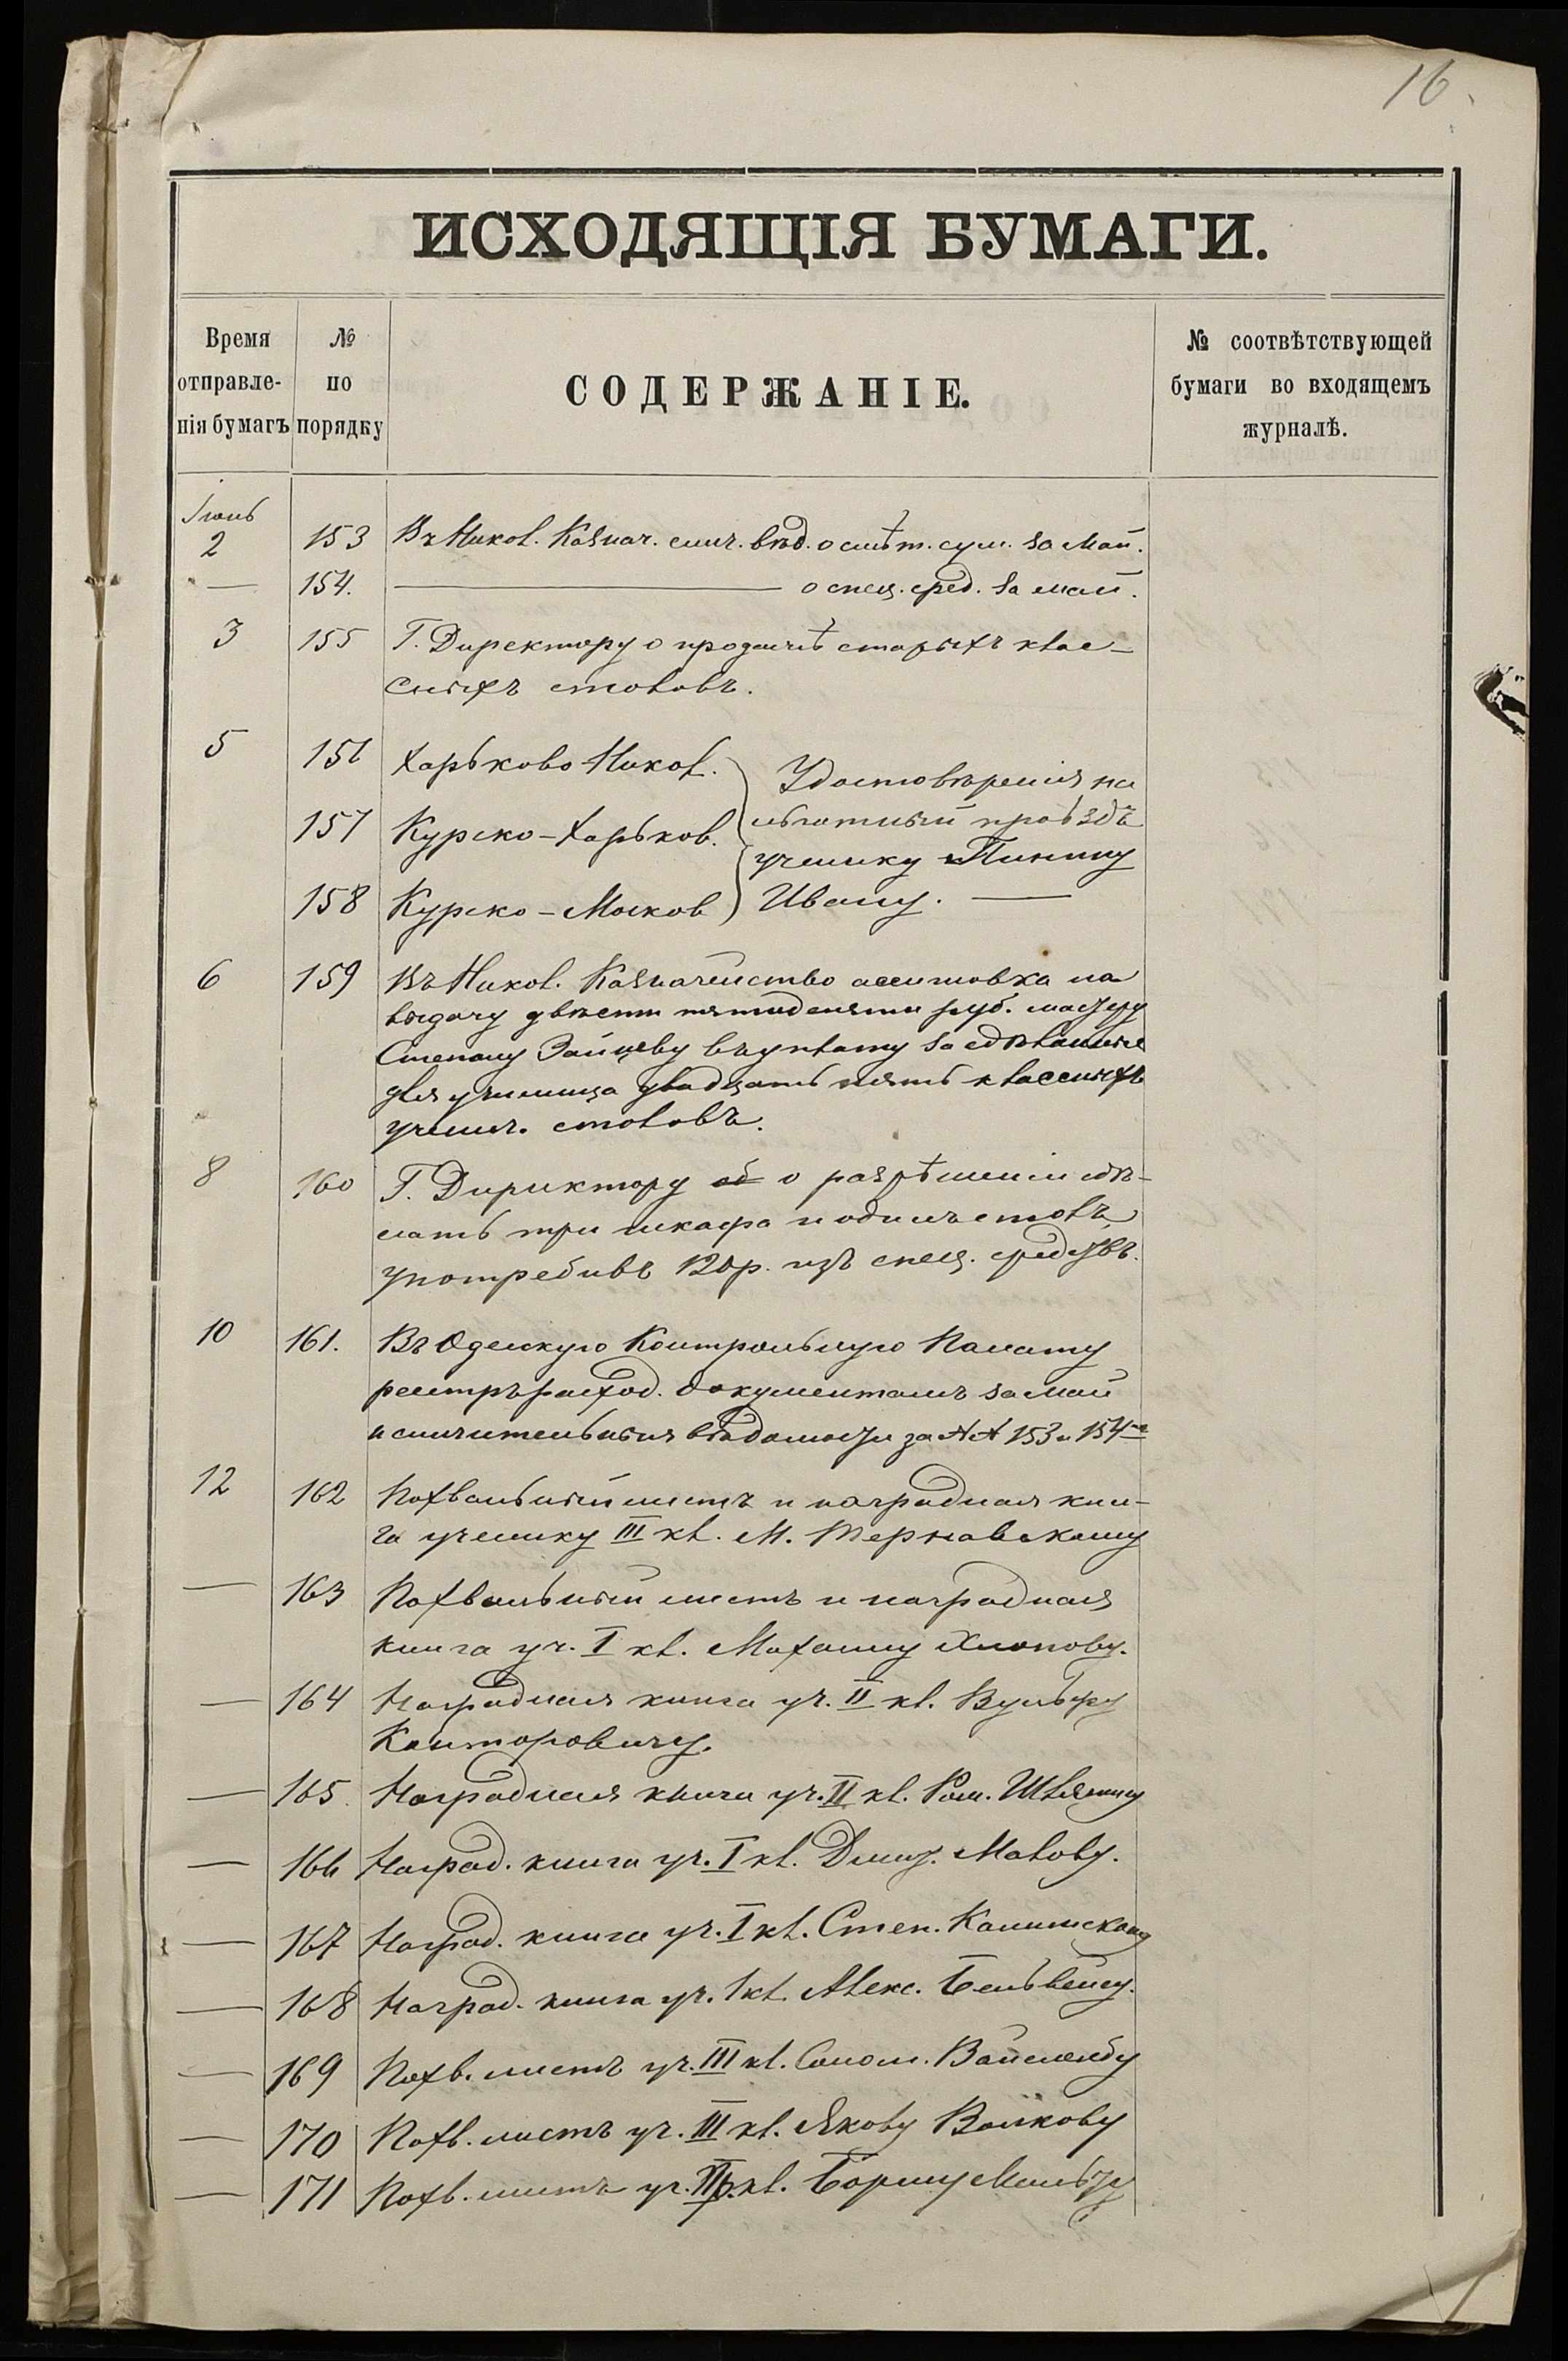 16.
ИСХОДЯЩІЯ БУМАГИ.
Время отправле-нія бумагъ
№ по порядку
СОДЕРЖАНІЕ.
№ соотвѣтствующей бумаги во входящемъ журналѣ.
Іюнь
2 153 Въ Никол. Казнач. слич. вѣд. о смѣт. сум. за Май.
— 154. — о спец. сред. за май.
3 155 Г. Директору о продажѣ старыхъ клас-
сныхъ столовъ.
5 156 Харьково Никол.
157 Курско-Харьков.
158 Курско-Москов
Удостовѣренія на
льготный проѣздъ
ученику Пинину
Ивану. —
6 159 Въ Никол. Казначейство ассигновка на
выдачу двѣсти пятидесяти руб. мастеру
Степану Зайцеву въ уплату за сдѣланные
для училища двадцать пять классныхъ
ученич. столовъ.
8 160 Г. Дириктору об о разрѣшеніи сдѣ-
лать три шкафа и одинъ столъ,
употребивъ 120р. изъ спец. средствъ.
10 161. Въ Одесскую Контрольную Палату
реестръ расход. документамъ за май
и сличительныя вѣдомости за №№ 153 и 154
12 162 Похвальный листъ и наградная кни-
га ученику III кл. М. Терновскому
— 163 Похвальный листъ и наградная
книга уч. I кл. Михаилу Хлопову.
— 164 Наградная книга уч. II кл. Вульфу
Канторовичу.
— 165 Наградная книга уч. II кл. Ром.
— 166 Наград. книга уч. I кл. Дмит. Малову.
— 167 Наград. книга уч. I кл. Степ. Калинскому
— 168 Наград. книга уч. I кл. Алекс.
— 169 Похв. листъ уч. III кл. Солом.
— 170 Похв. листъ уч. III кл. Якову Волкову
— 171 Похв. листъ уч. кл. Борису